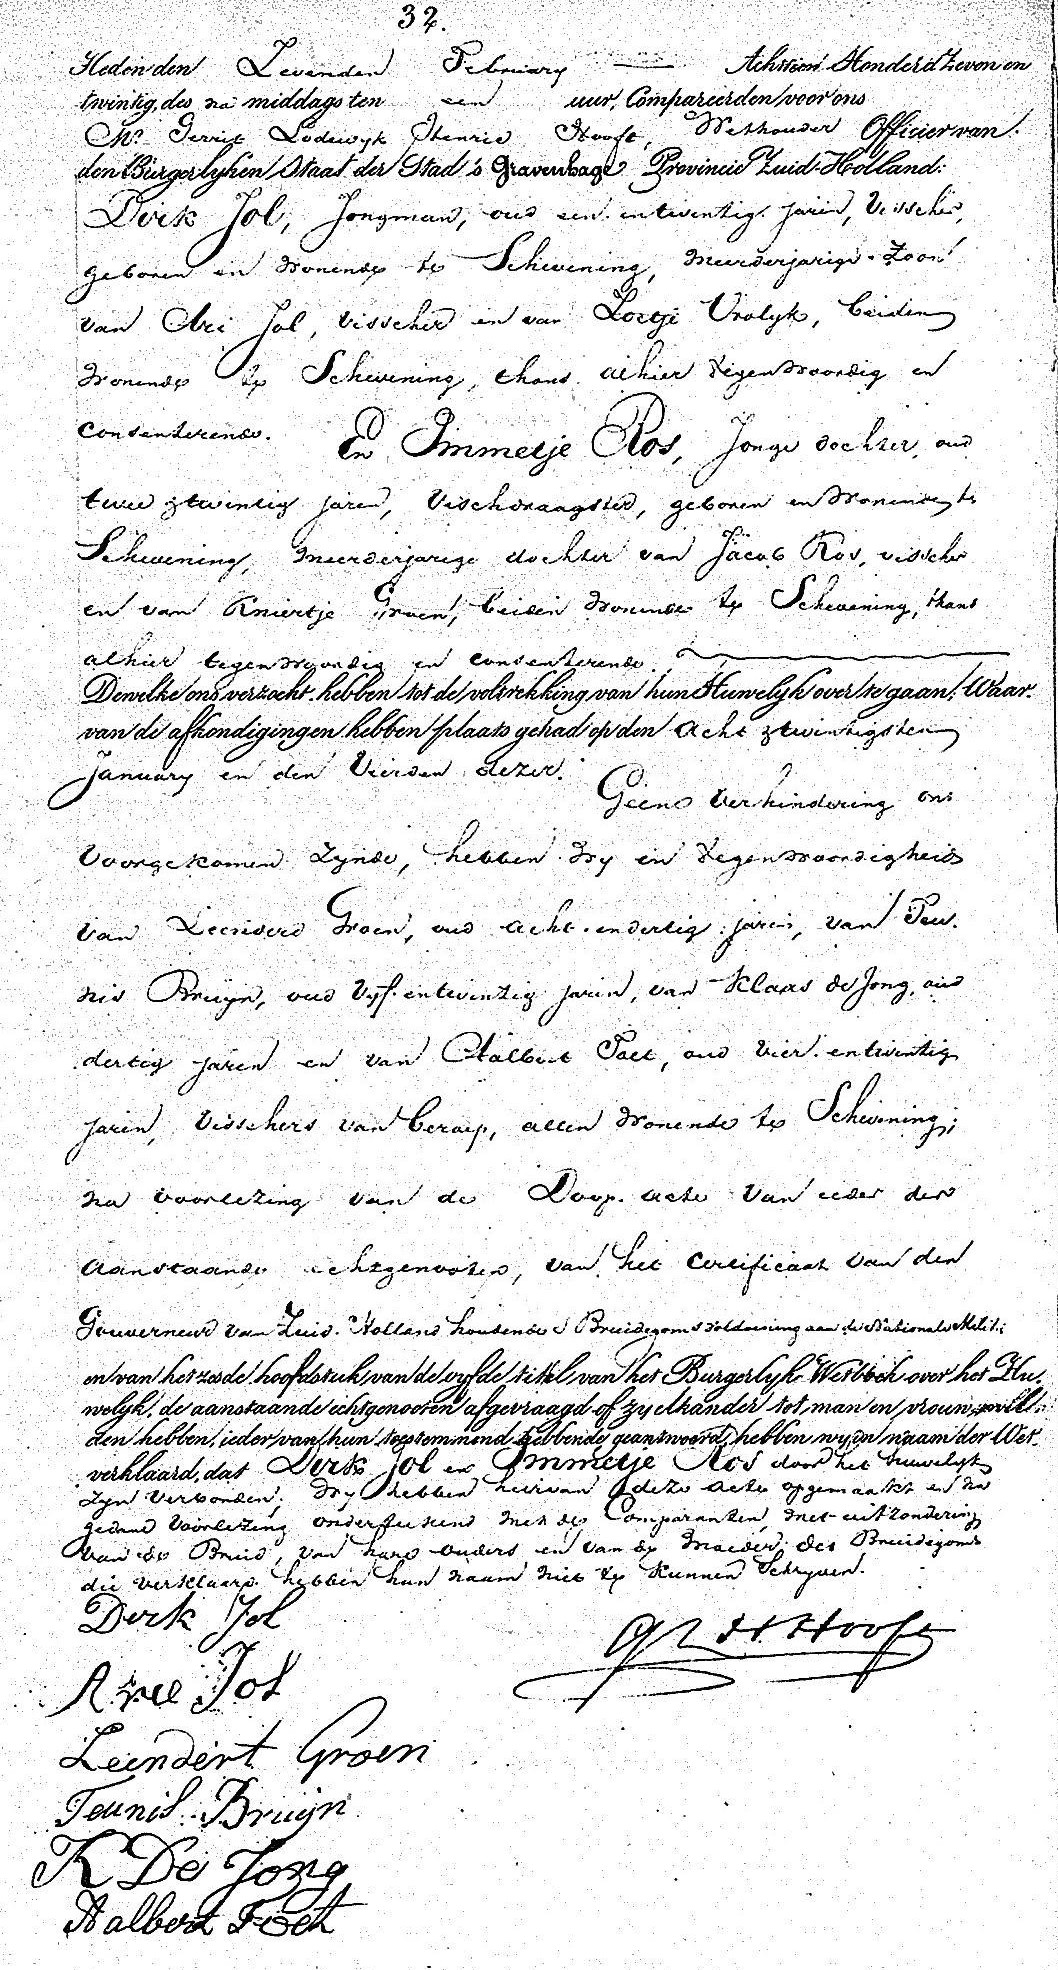 32.
Heden den Zevenden February Achttien Honderd Zeven en
twintig, des na middags ten een uur, Compareerden voor ons
Mr. Gerrit Lodewyk Henric Hooft, Wethouder Officier van
den Burgerlyken Staat der Stad 's Gravenhage Provincie Zuid-Holland:
Dirk Jol, Jongman, oud een entwintig jaren, Visscher,
geboren en Wonende te Schevening, Meerderjarige Zoon
van Arie Jol, Visscher en van Loetje Vrolyk, beiden
Wonende te Schevening, thans alhier tegenwoordig en
Consenterende. En Immetje Ros, Jonge dochter, oud
twee & twintig jaren, Vischdraagster, geboren en Wonende te
Schevening, Meerderjarige dochter van Jacob Ros, visscher
en van Kniertje Groen, beiden Wonende te Schevening, thans
alhier tegenwoordig en Consenterende.
Dewelke ons verzocht hebben tot de voltrekking van hun Huwelyk over te gaan. Waar-
van de afkondigingen hebben plaats gehad op den Acht & twintigsten
January en den Vierden dezer.
Geene Verhindering ons
Voorgekomen Zynde, hebben Wy in tegenwoordigheid
van Leendert Groen, oud acht-endertig jaren, van Teu-
nis Bruyn, oud Vyf-entwintig jaren, van Klaas de Jong, oud
dertig jaren en van Aalbert Foet, oud Vier-entwintig
jaren, Visschers van beroep, allen Wonende te Schevening;
na voorlezing van de Doop-acte van ieder der
aanstaande echtgenooten, van het Certificaat van den
Gouverneur van Zuid-Holland houdende s Bruidegoms Voldoening aan de Nationale Militie
en van het zesde hoofdstuk van de vyfde titel van het Burgerlyk Wetboek over het Hu-
welyk, de aanstaande echtgenooten afgevraagd of zy elkander tot man en vrouw wil-
den hebben, ieder van hun toestemmend hebbende geantwoord, hebben wy in naam der Wet
verklaard, dat Dirk Jol en Immetje Ros door het huwelyk
Zyn Verbonden; Wy hebben hiervan deze acte opgemaakt en na
gedane Voorlezing onderteekend met de Comparanten, met uitzondering
van de Bruid, van hare ouders en van de Moeder des Bruidegoms
die Verklaard hebben hun naam niet te kunnen Schryven.
Derk Jol
G L H Hooft
Arie Jol
Leendert Groen
Teunis Bruyn
K De Jong
Aalbert Foet